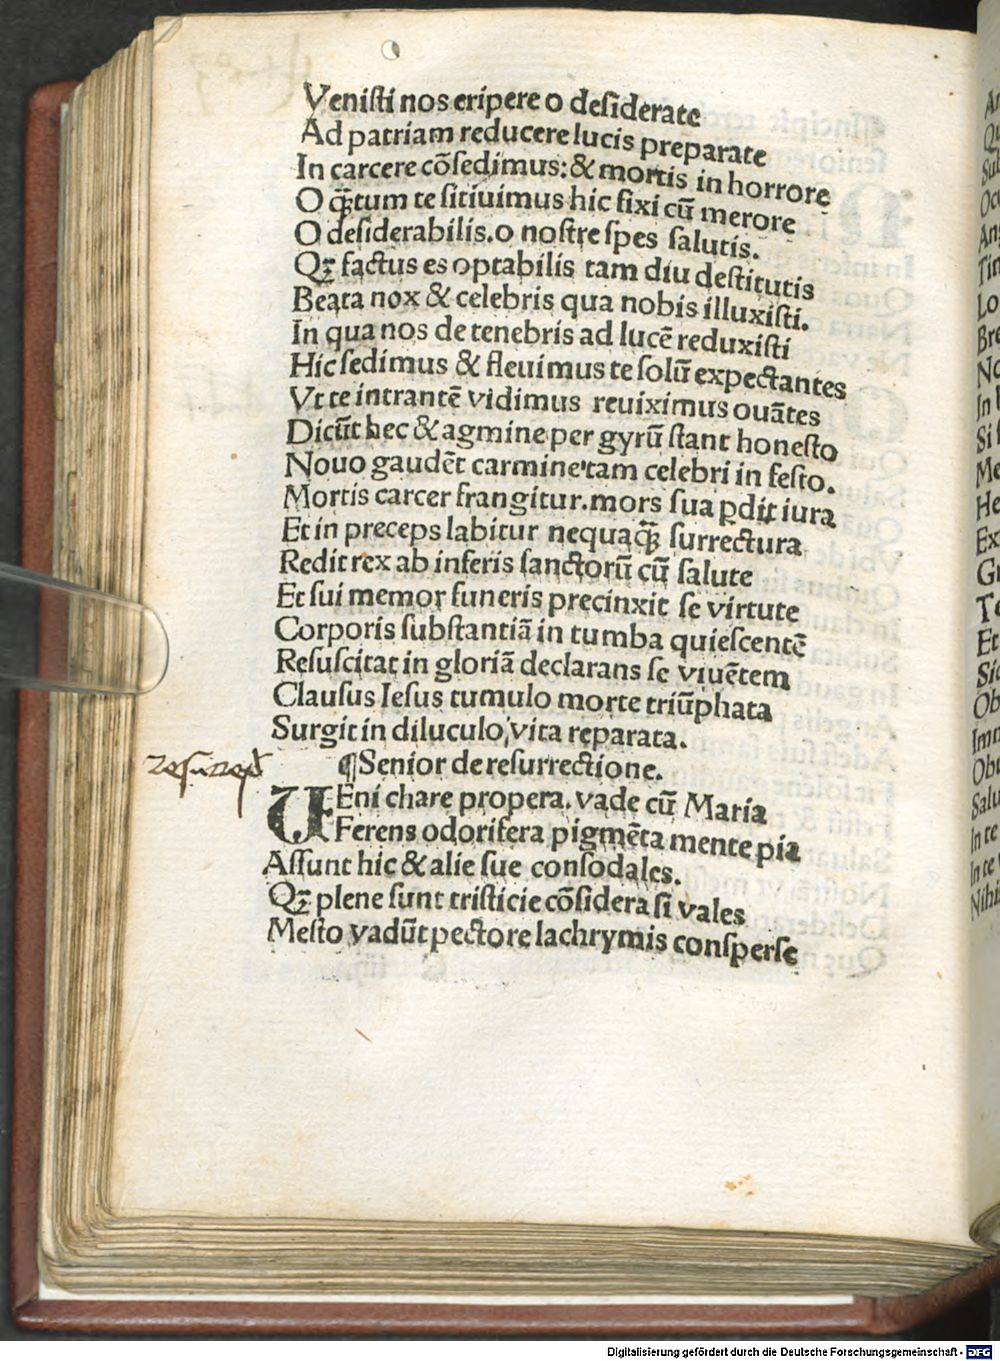 Veniſti nos eripere o deſiderate
Ad patriam reducere lucis preparate
In carcere cõſedimus: & mortis in horrore
O q̃tum te ſitiuimus hic fixi cũ merore
O deſiderabilis. o noſtre ſpes ſalutis.
Qꝫ factus es optabilis tam diu deſtitutis
Beata nox & celebris qua nobis illuxiſti.
In qua nos de tenebris ad lucẽ reduxiſti
Hic ſedimus & fleuimus te ſolũ expectantes
Vt te intrantẽ vidimus reuiximus ouãtes
Dicũt hec & agmine per gyrũ ſtant honeſto
Nouo gaudẽt carmine tam celebri in feſto.
Mortis carcer frangitur. mors ſua ꝑdit iura
Et in preceps labitur nequaq̃ꝫ ſurrectura
Redit rex ab inferis ſanctorũ cũ ſalute
Et ſui memor funeris precinxit ſe virtute
Corporis ſubſtantiã in tumba quieſcentẽ
Reſuſcitat in gloriã declarans ſe viuẽtem
Clauſus Ieſus tumulo morte triũphata
Surgit in diluculo, vita reparata.
¶Senior de reſurrectione.
VEni chare propera. vade cũ Maria
Ferens odorifera pigmẽta mente pia
Aſſunt hic & alie ſue conſodales.
Qꝫ plene ſunt triſticie cõſidera ſi vales
Meſto vadũt pectore lachrymis conſperſe
Digitalisierung gefördert durch die Deutsche Forschungsgemeinschaft - DFG